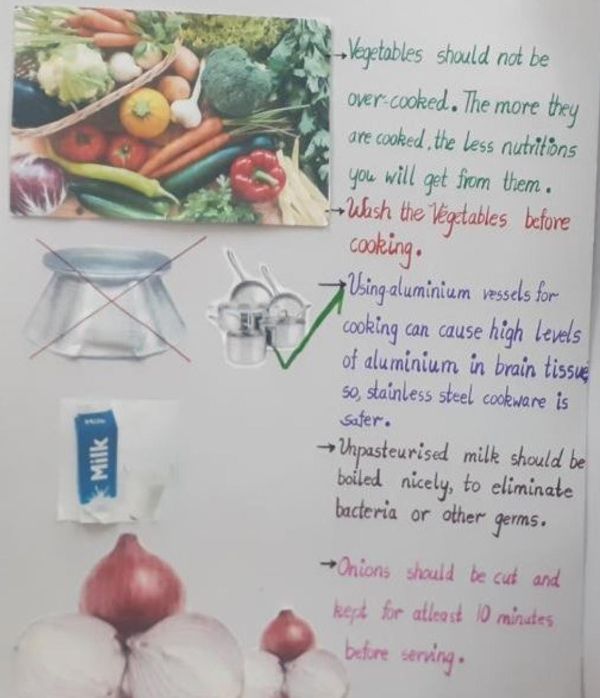 →Vegetables should not be
over-cooked. The more they
are cooked, the less nutritions
you will get from them.
→Wash the Vegetables before
cooking.
→Using aluminium vessels for
cooking can cause high levels
of aluminium in brain tissue
so, stainless steel cookware is
safer.
Milk
→Unpasteurised milk should be
boiled nicely, to eliminate
bacteria or other germs.
→Onions should be cut and
kept for atleast 10 minutes
before serving.